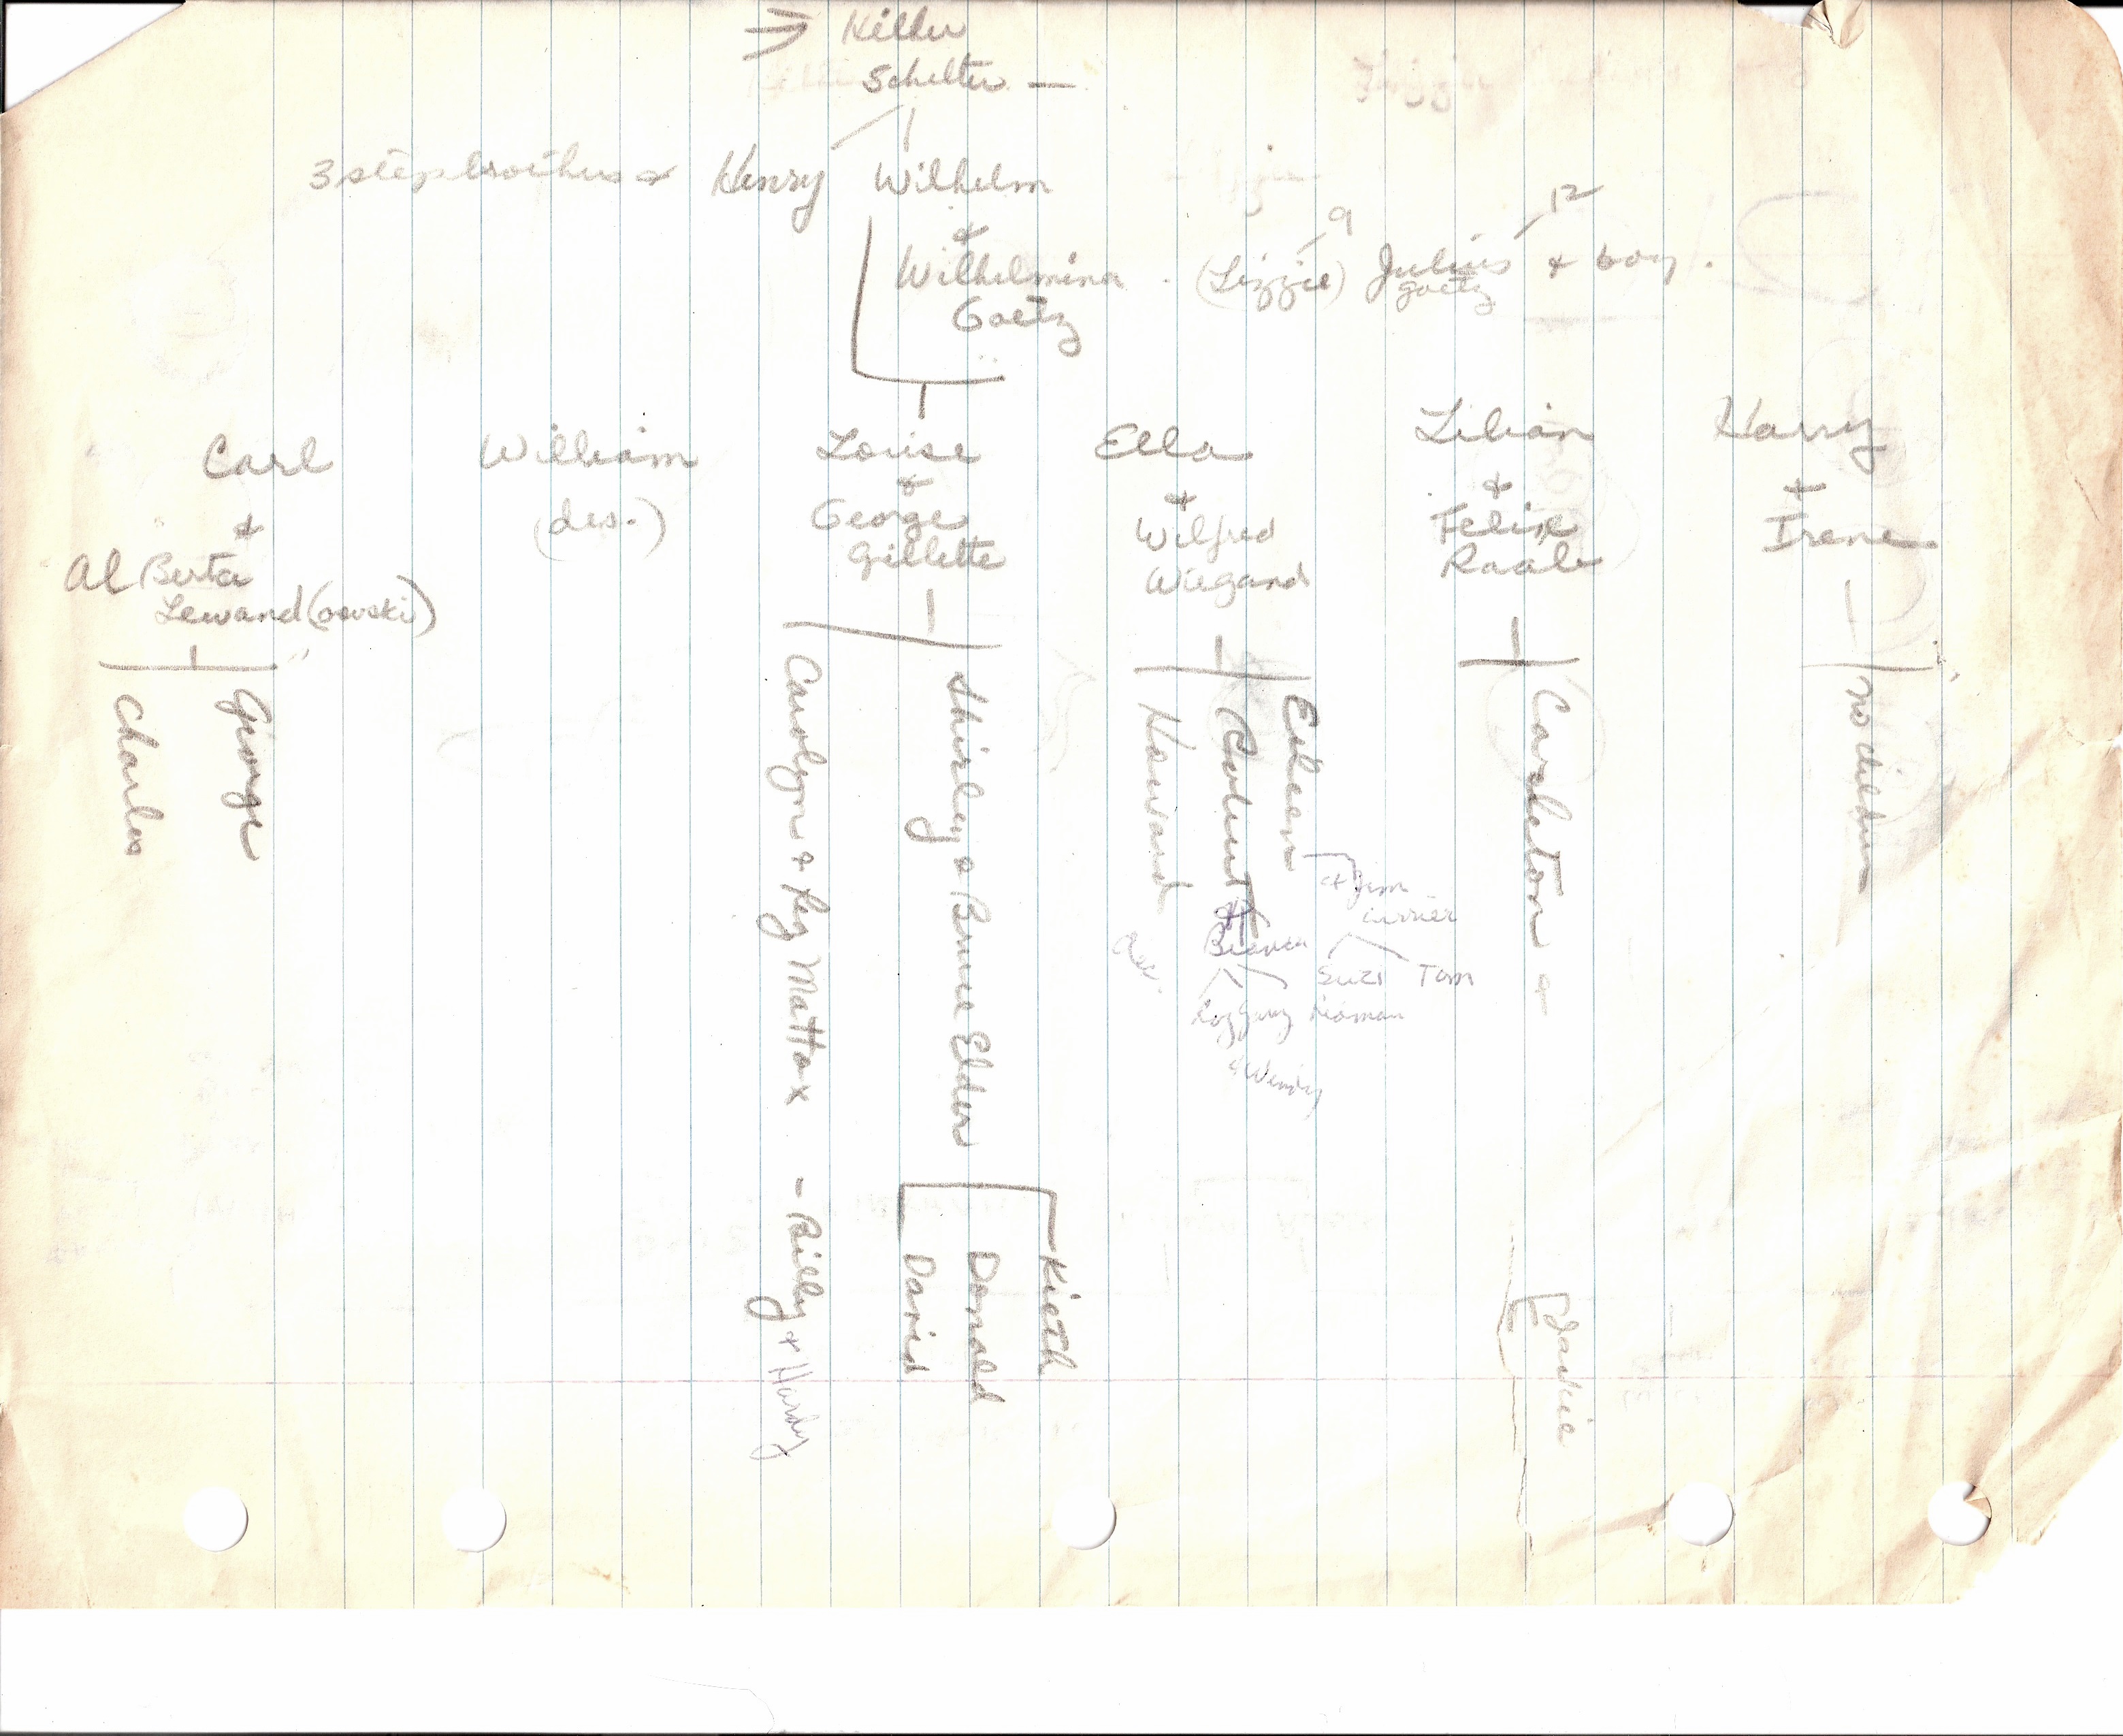 Schelter —
3 stepbrothers & Henry Wilhelm
9 12
&
Wilhelmina (Lizzie) Julius & boy.
Goetz goetz
Carl William Louise Ella Lilian Harry
& (des.) & & & +
Al Berta George Wilfred Felix Irene
Lewand(owski) Gillette Wiegand Raab
Charles
George
Carolyn & Ray Mattox - Billy & Hardy
Shirley & Bruce Elder
David
Donald
Kieth
Howard
Robert
&
Eileen
& Jim
Currier
Suzi Tom
Gary
& Wendy
Carleton -
Jackie
no children